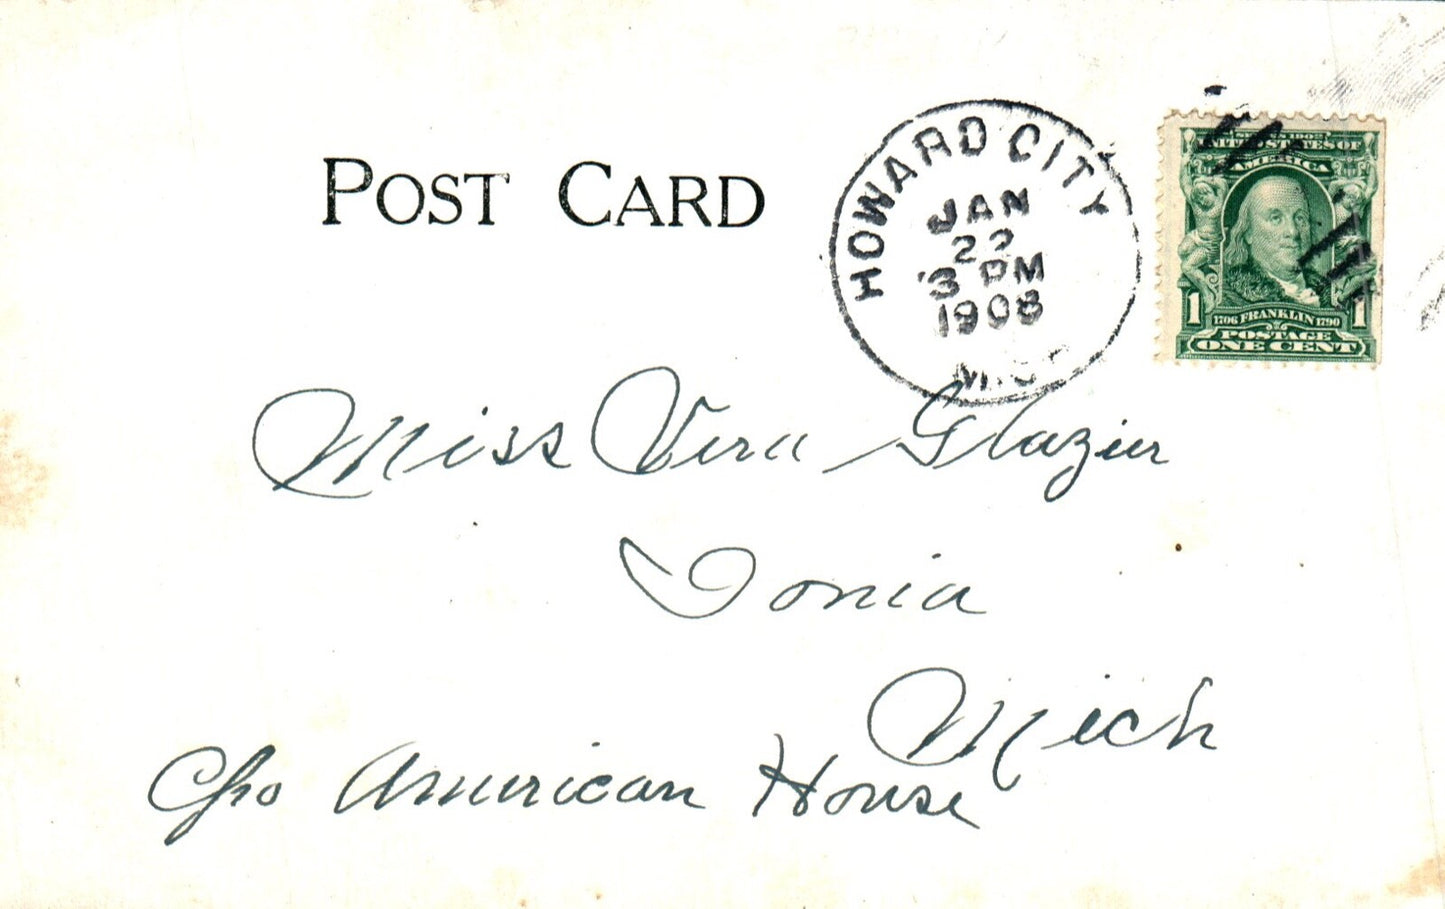 POST CARD
HOWARD CITY
JAN
22
3 PM
1908
MICH
SERIES 1902
UNITED STATES OF
AMERICA
1 1
1706 FRANKLIN 1790
POSTAGE
ONE CENT
Miss Vera Glazier
Ionia
Mich
c/o American House